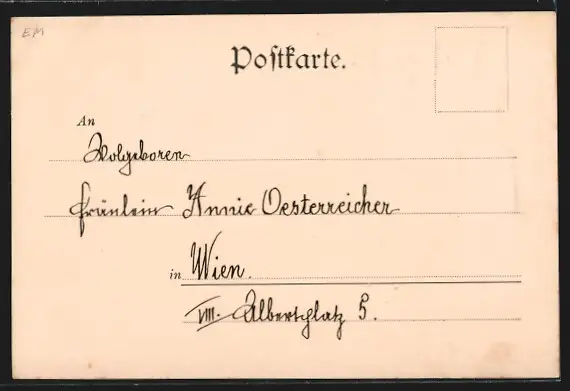 EM
Postkarte.
An
Wolgeboren
Fräulein Annie Oesterreicher
in Wien.
VIII. Albertplatz 5.